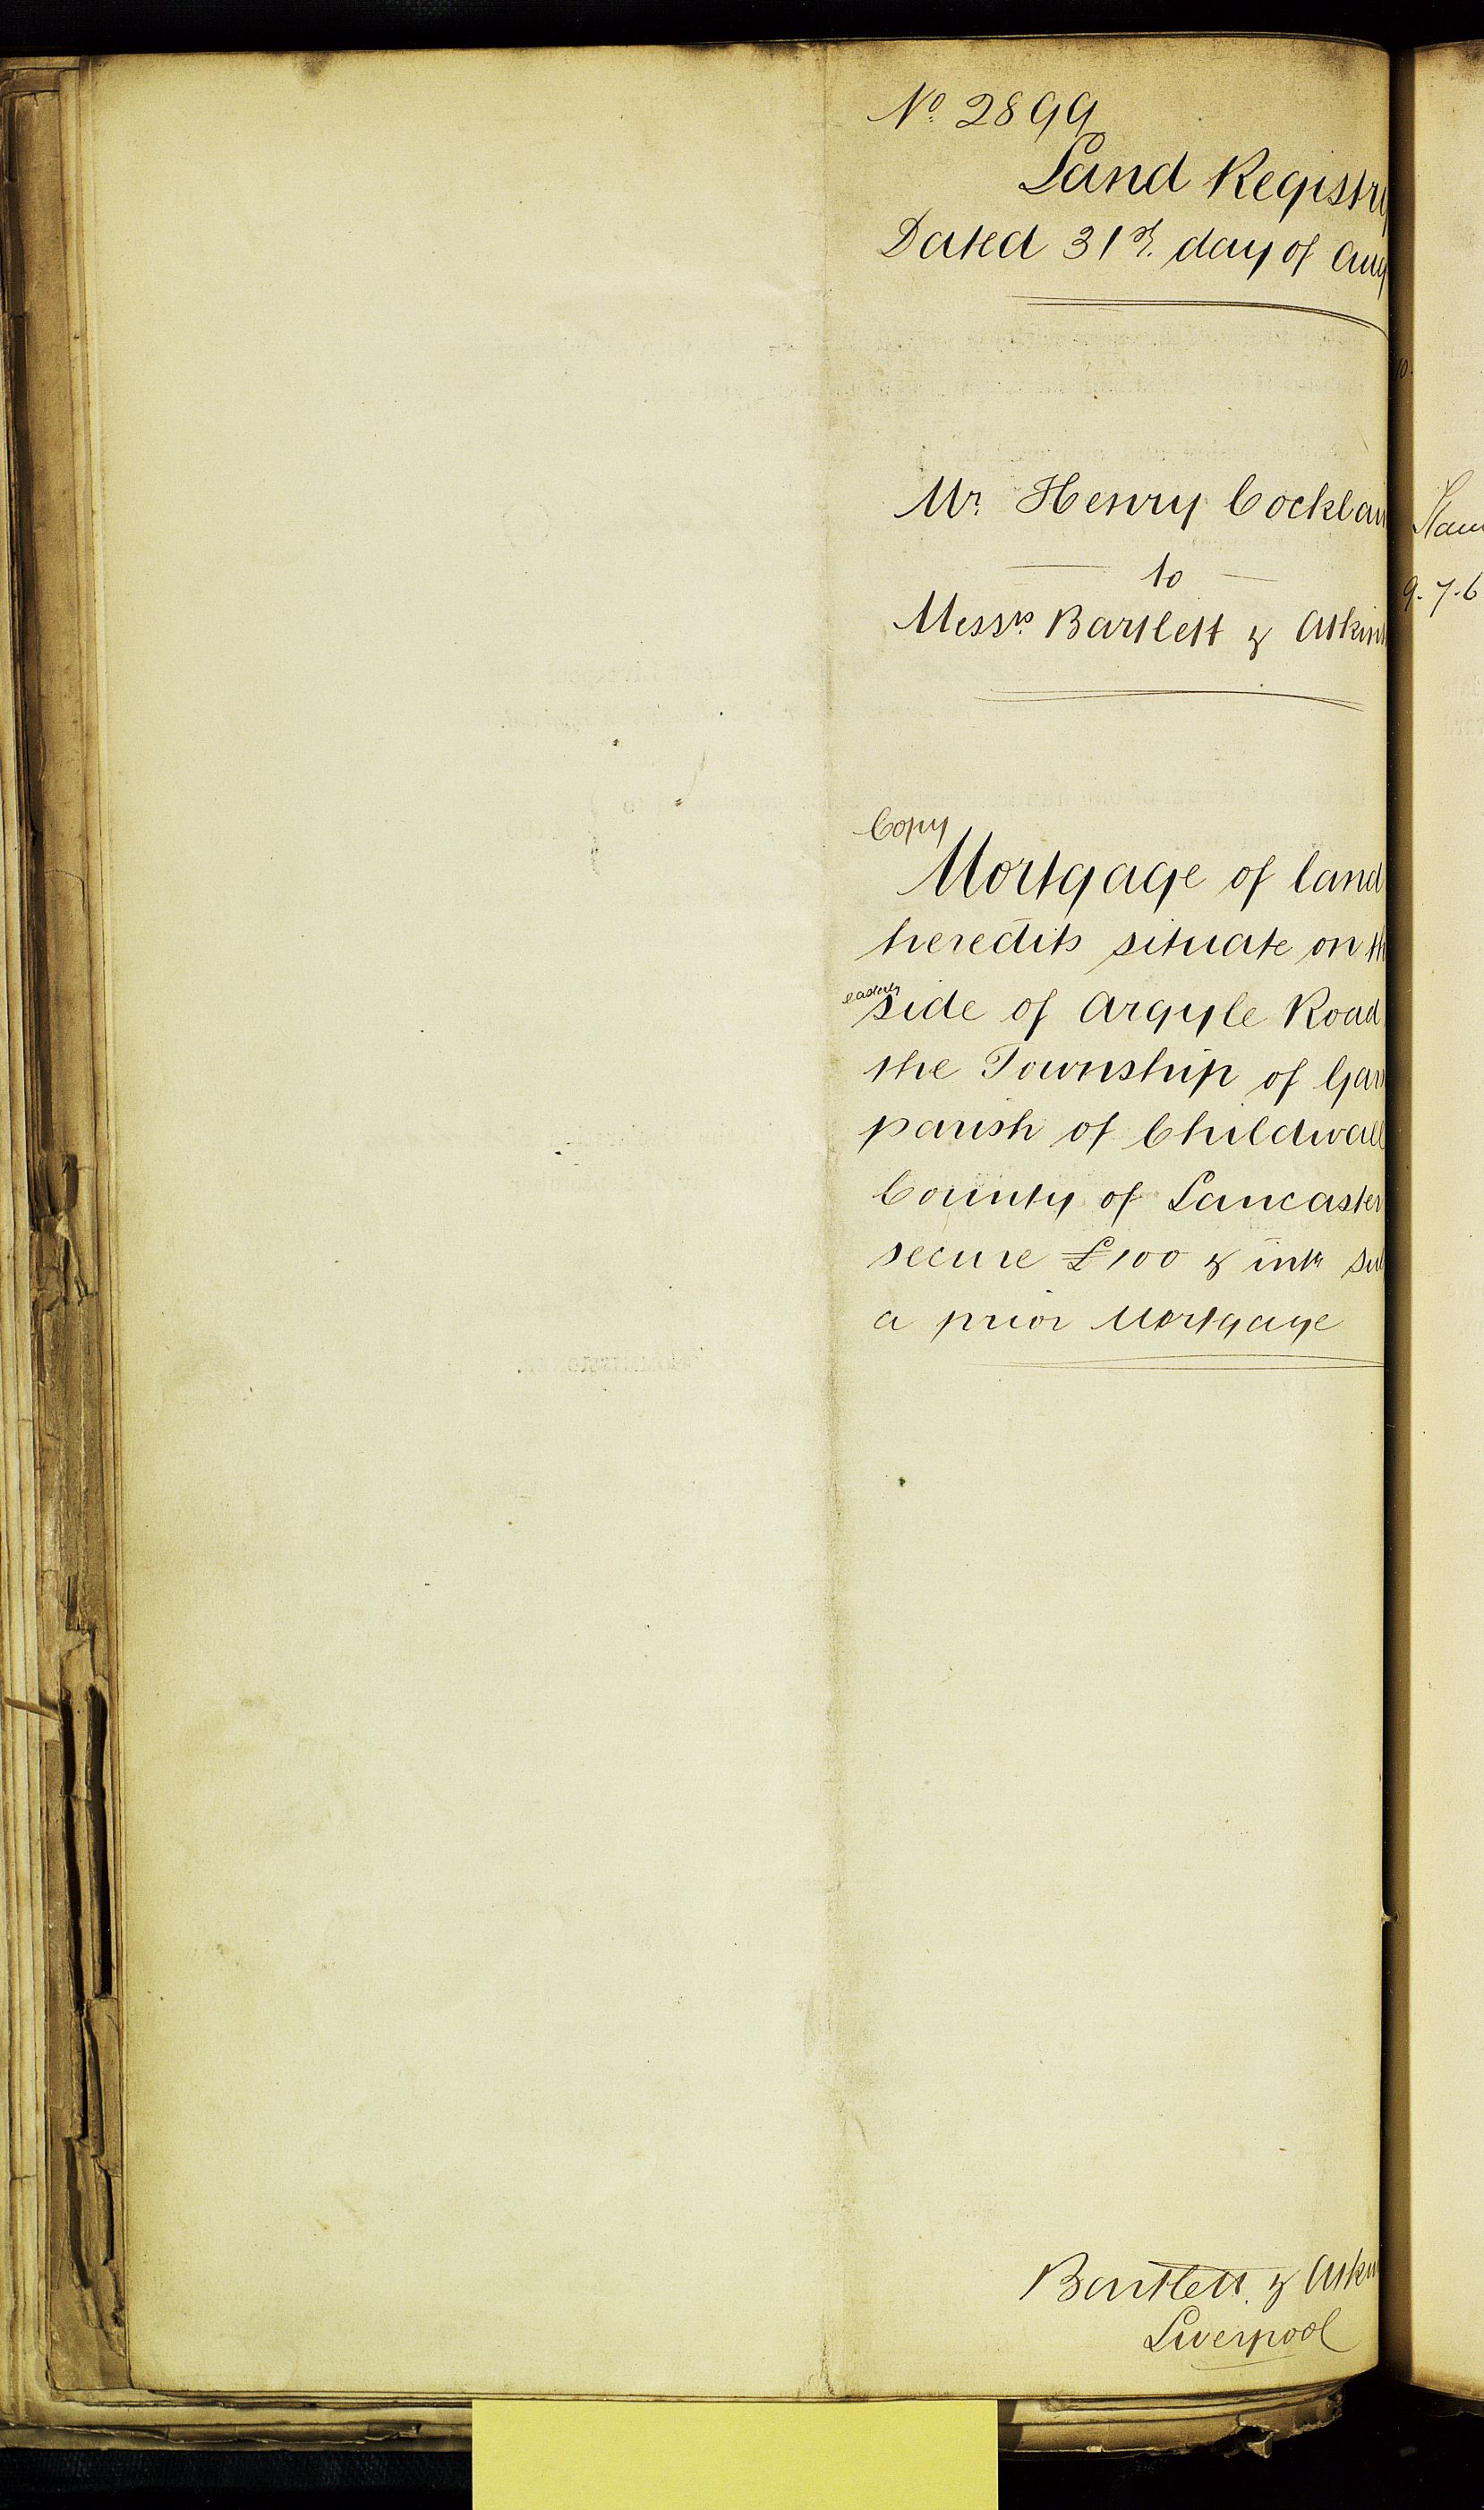 No. 2899
Land Registry
Dated 31st. day of Aug
Mr. Henry Cockbai
to
Messrs. Bartlett & Atkin
Copy
Mortgage of land
heredits situate on th
easterly
side of Argyle Road
the Township of Gar
parish of Childwall
County of Lancaster
secure £100 & intt su
a prior Mortgage
Bartlett & Atki
Liverpool
9.7.6